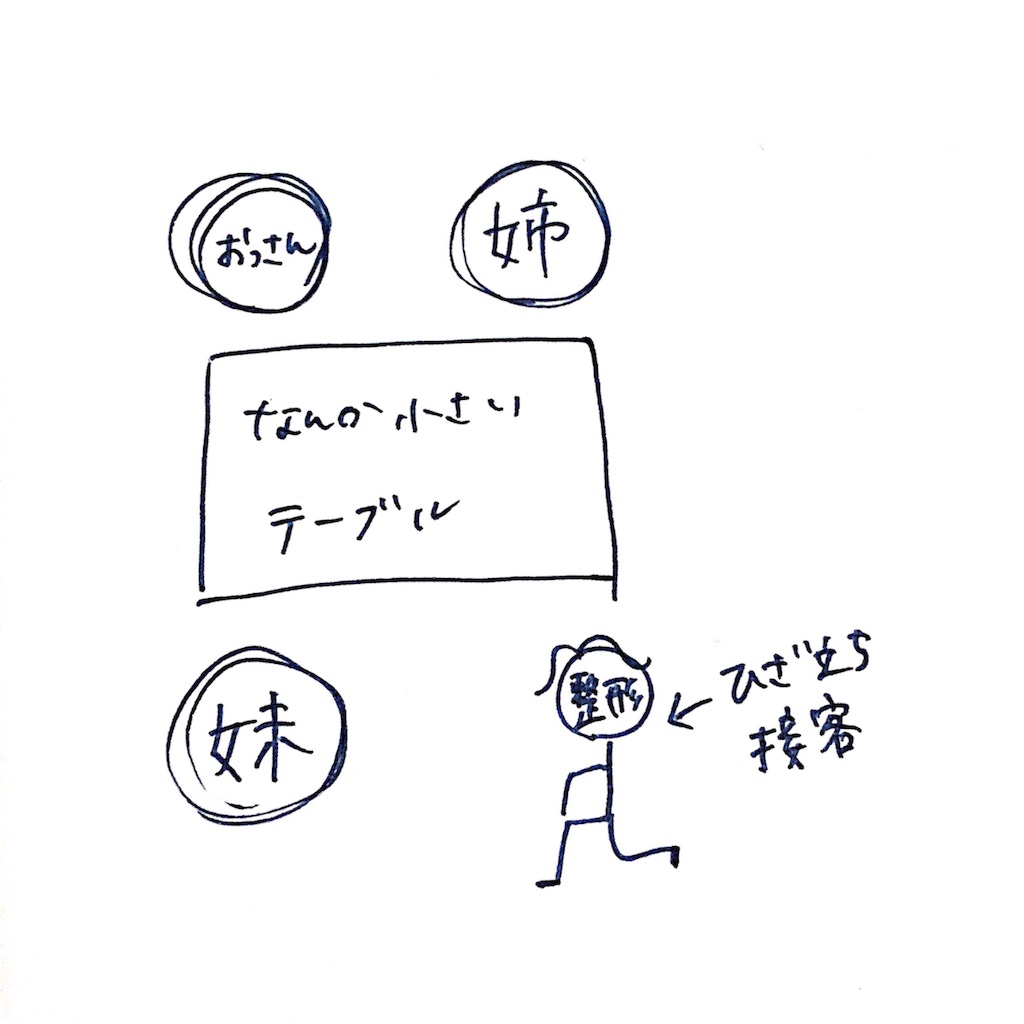 おっさん
姉
なんか小さい
テーブル
妹
整形
←ひざ立ち
接客